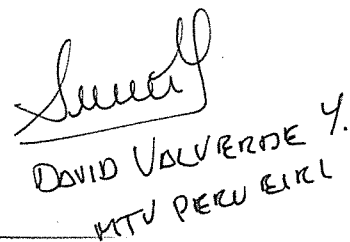 DAVID VALVERDE Y.
MTV PERU EIRL